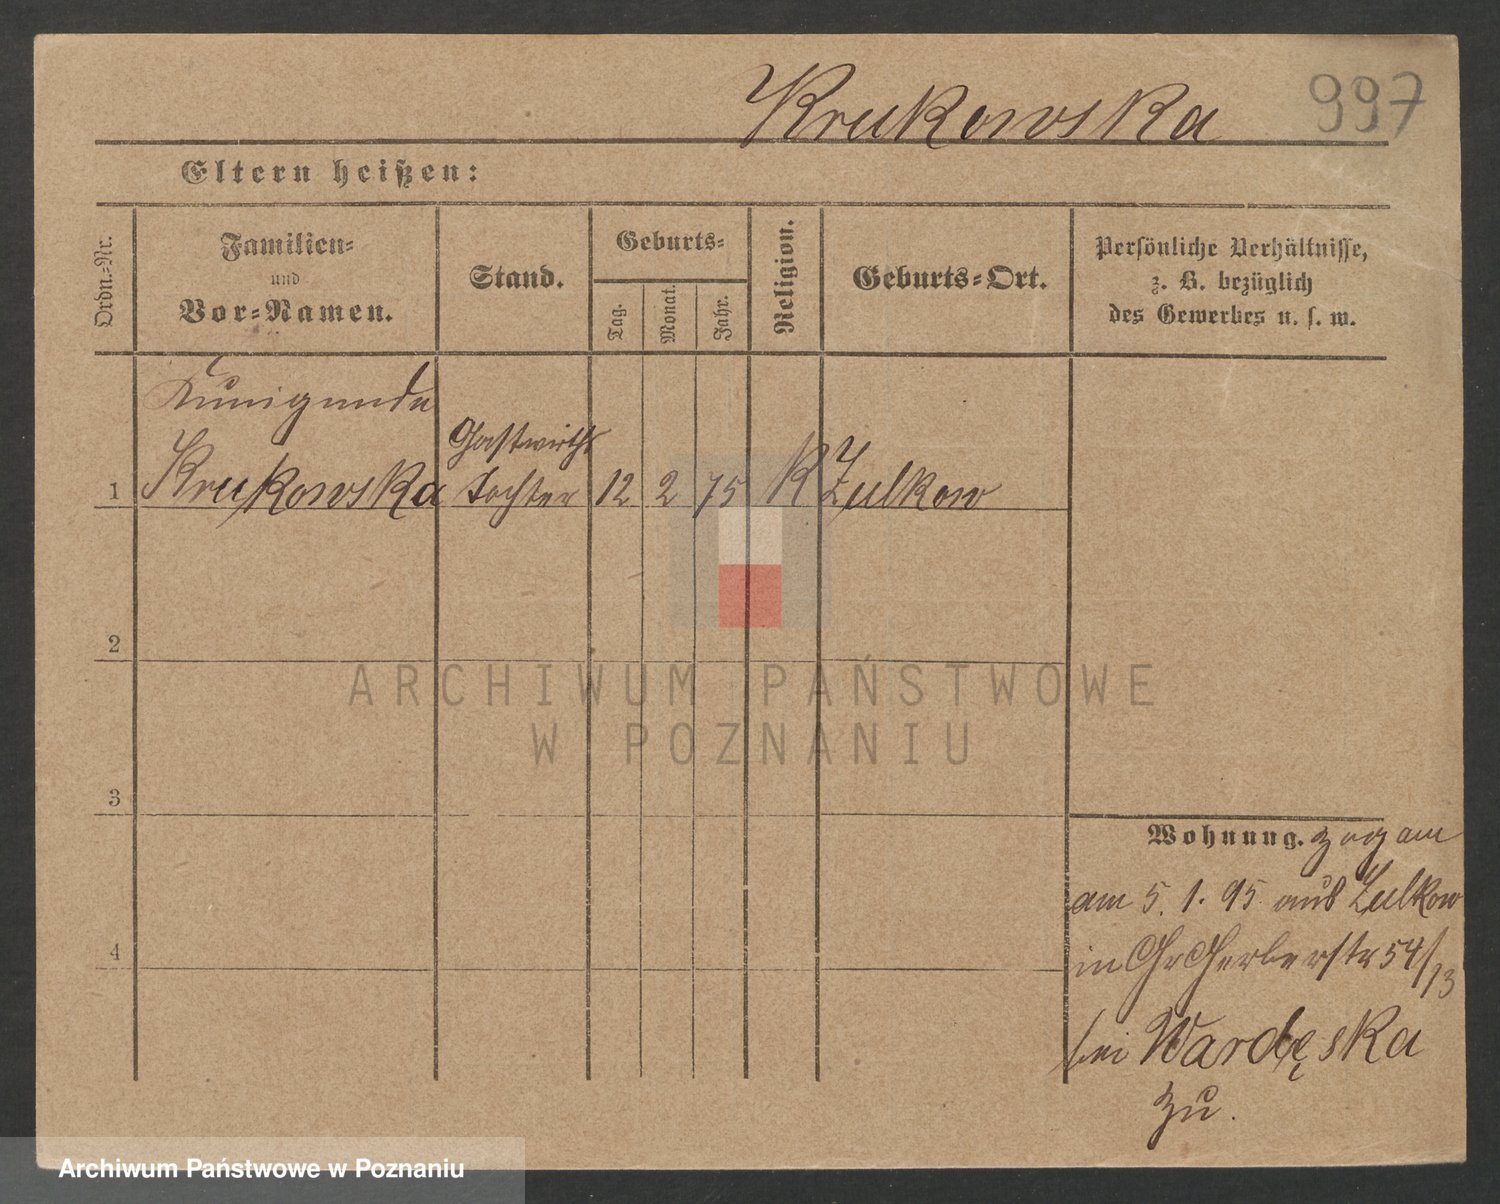 Krukowska 997
Eltern heißen:
Ordn.-Nr.
Familien-
und
Vor-Namen.
Stand.
Geburts-
Tag.
Monat.
Jahr.
Religion.
Geburts-Ort.
Persönliche Verhältnisse,
z. B. bezüglich
des Gewerbes u. s. w.
Kunigunda
Gastwirths
1 Krukowska Tochter 12 2 75 K Zulkow
2
3
4
Wohnung. zog am
am 5. 1. 95 aus Zulkow
in Gr Gerberstr 54/13
bei Wardęska
zu.
ARCHIWUM PAŃSTWOWE
W POZNANIU
Archiwum Państwowe w Poznaniu